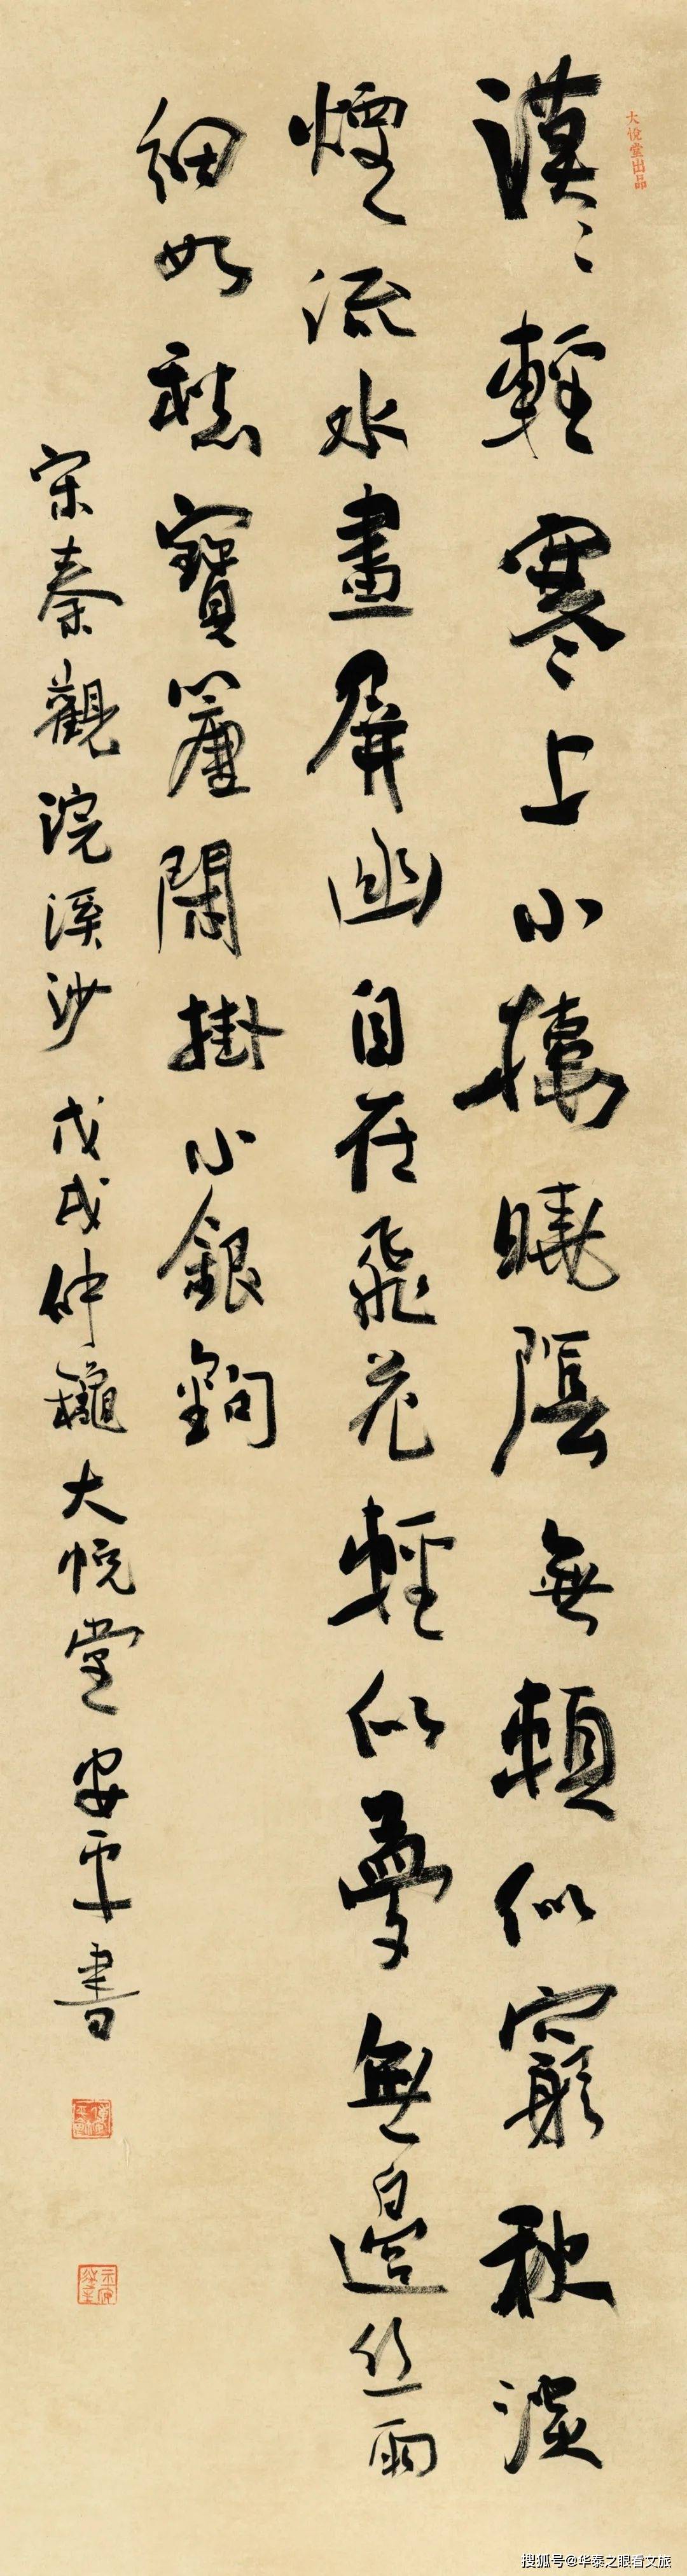 大悅堂出品
漠〻輕寒上小樓曉陰無賴似窮秋淡
煙流水畫屏幽自在飛花輕似夢無邊絲雨
細如愁寶簾閑掛小銀鉤
宋秦觀浣溪沙 戊戌仲龝大悅堂安平書
搜狐号@华泰之眼看文旅